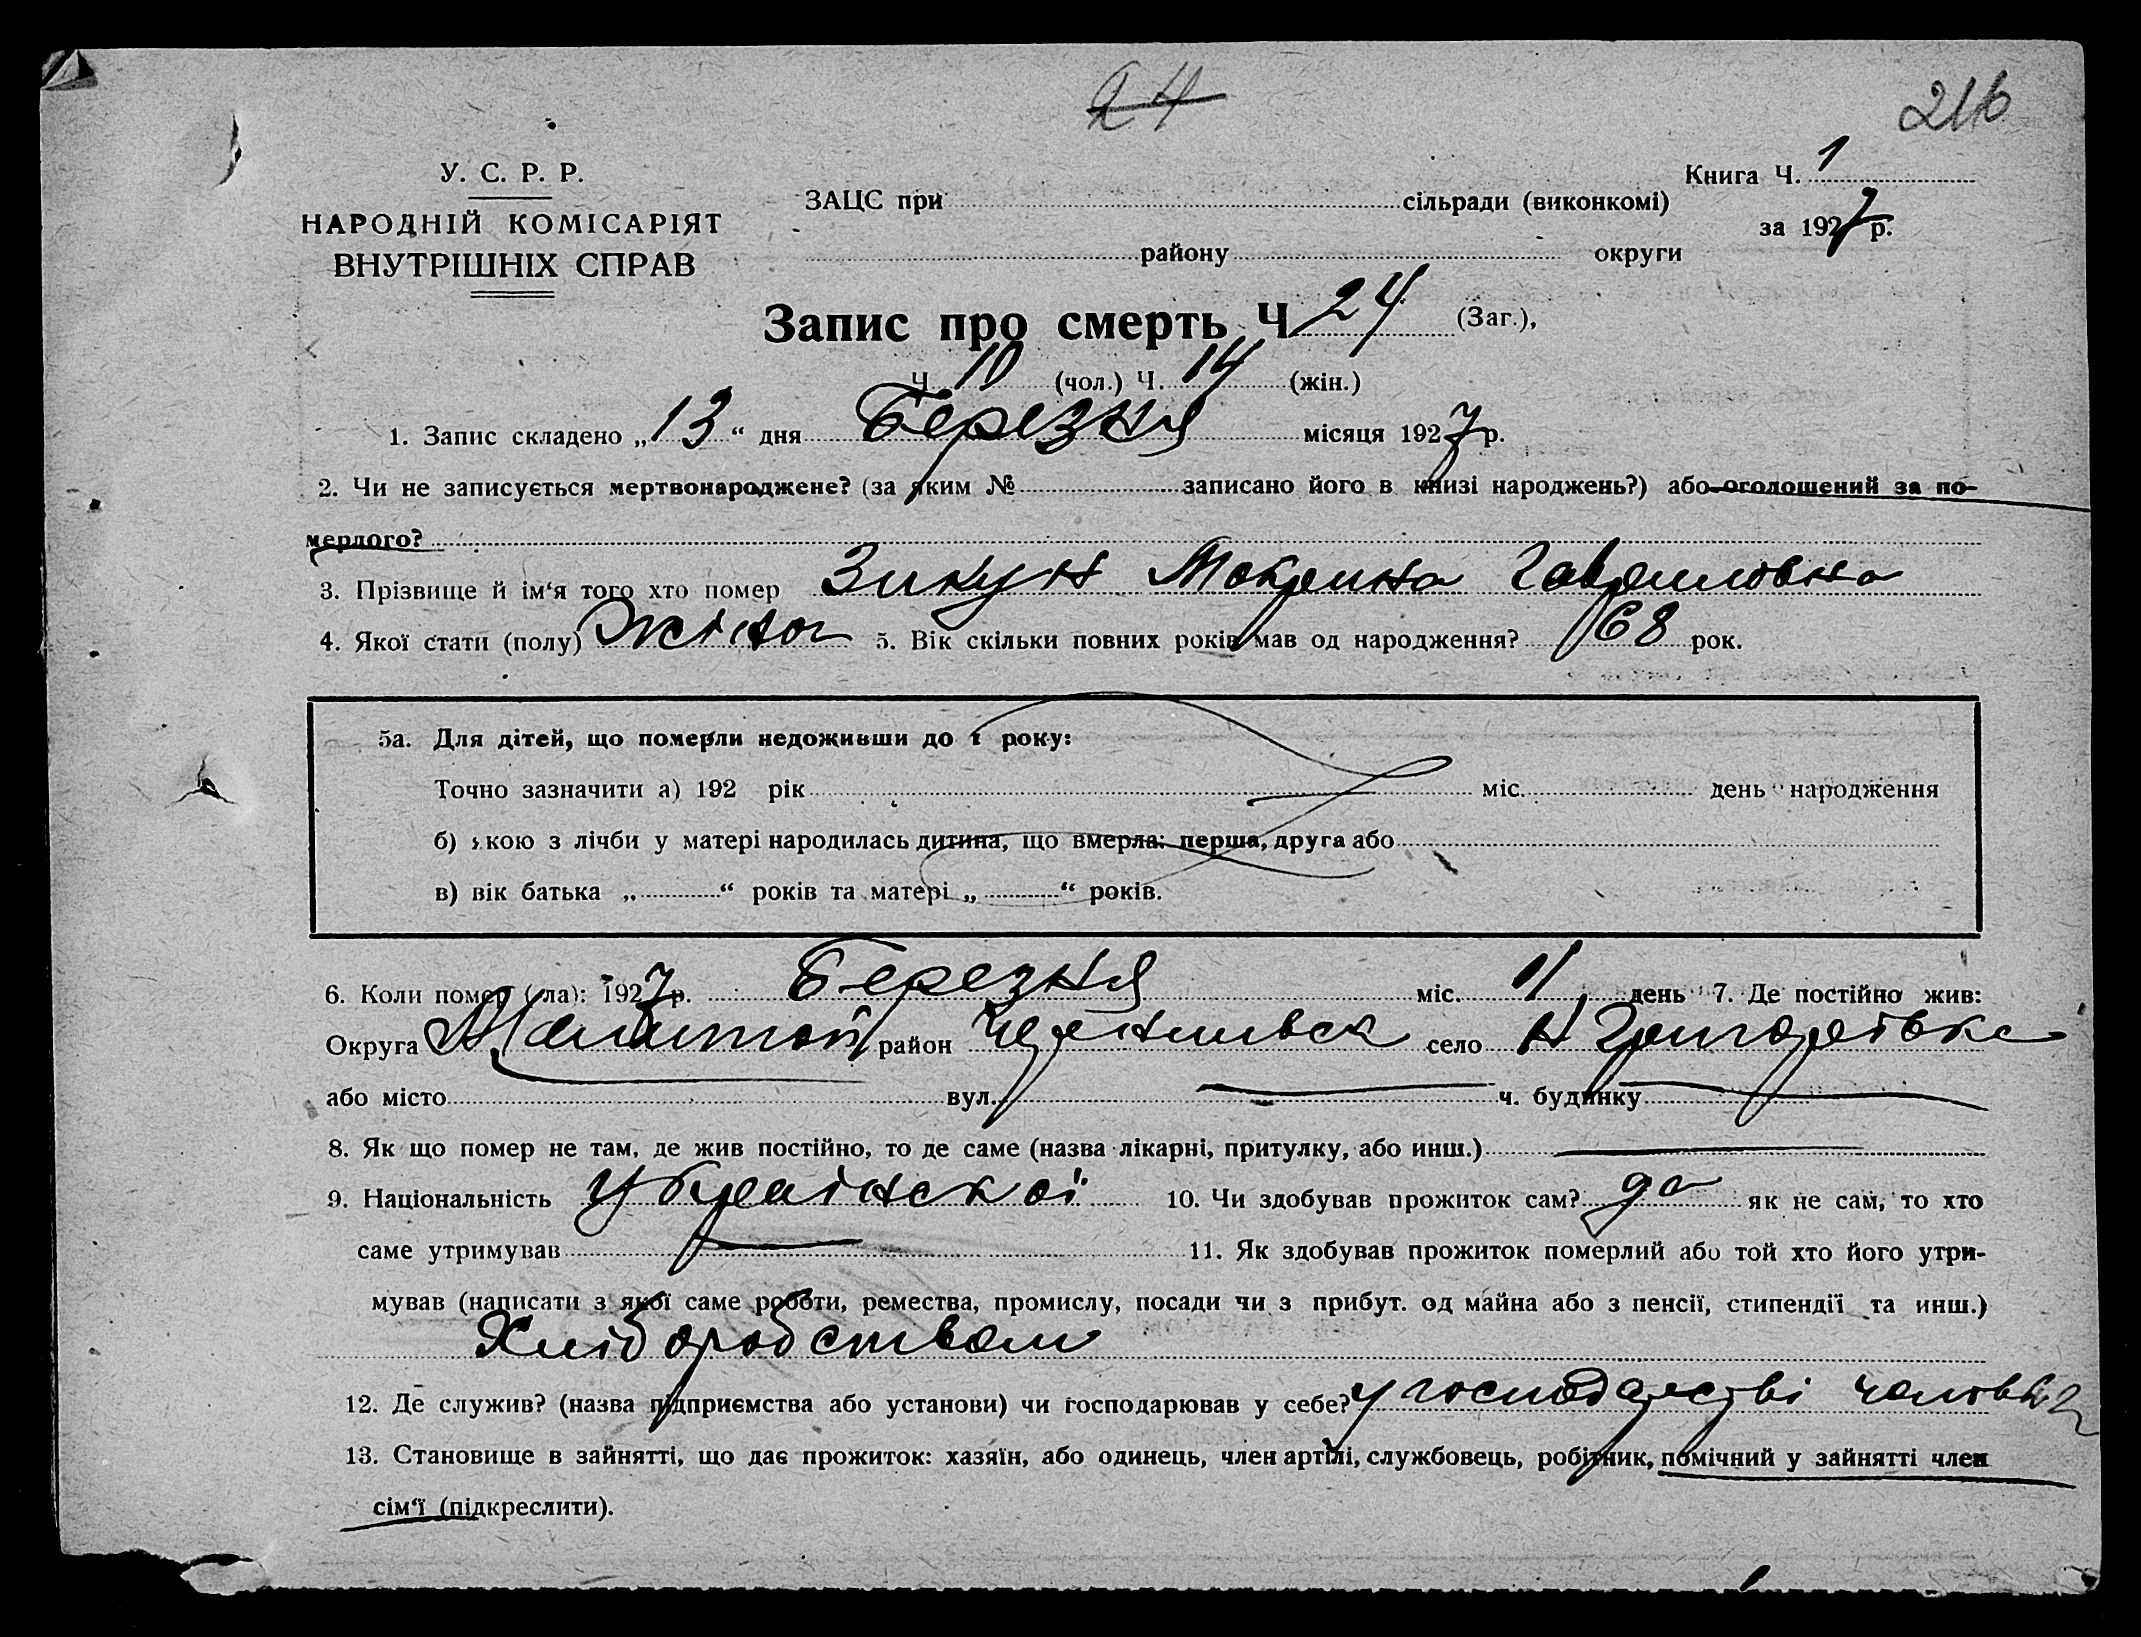 24
216
У. С. Р. Р.
НАРОДНІЙ КОМІСАРІЯТ
ВНУТРІШНІХ СПРАВ
Книга Ч. 1
ЗАЦС при сільради (виконкомі)
за 1927 р.
району округи
Запис про смерть Ч 24 (Заг.),
Ч. 10 (чол.) Ч. 14 (жін.)
1. Запис складено „13“ дня Березня місяця 1927 р.
2. Чи не записується мертвонароджене? (за яким № записано його в книзі народжень?) або оголошений за по-
мерлого?
3. Прізвище й ім‘я того хто помер Зикун Мокрина Гавриловна
4. Якої стати (полу) Жіноч 5. Вік скільки повних років мав од народження? 68 рок.
5а. Для дітей, що померли недоживши до 1 року:
Точно зазначити а) 192 рік міс. день народження
б) якою з лічби у матері народилась дитина, що вмерла: перша, друга або
в) вік батька „ “ років та матері „ “ років.
6. Коли помер (ла): 1927 р. Березня міс. 11 день 7. Де постійно жив:
Округа район село Н Григорівка
або місто вул. ч. будинку
8. Як що помер не там, де жив постійно, то де саме (назва лікарні, притулку, або инш.)
9. Національність Українскої 10. Чи здобував прожиток сам? да як не сам, то хто
саме утримував 11. Як здобував прожиток померлий або той хто його утри-
мував (написати з якої саме роботи, ремества, промислу, посади чи з прибут. од майна або з пенсії, стипендії та инш.)
Хліборобством
12. Де служив? (назва підприємства або установи) чи господарював у себе? у господарстві чоловіка
13. Становище в зайнятті, що дає прожиток: хазяїн, або одинець, член артілі, службовець, робітник, помічний у зайнятті член
сім‘ї (підкреслити).